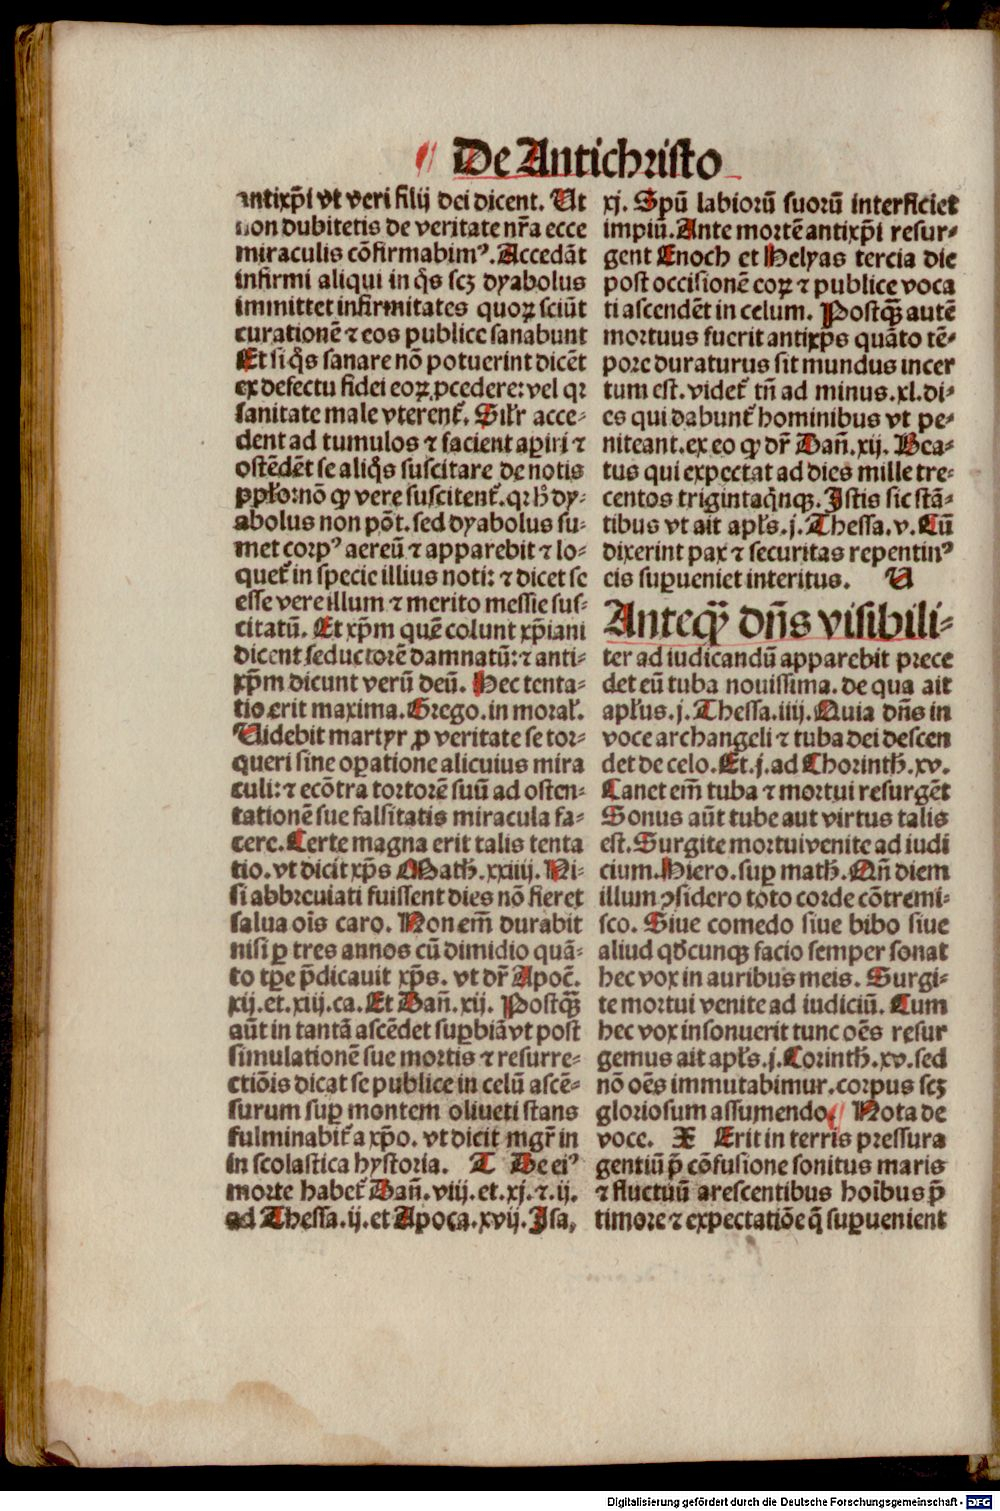 De Antichristo
antixp̄i vt veri filij dei dicent. Ut
non dubitetis de veritate nr̄a ecce
miraculis cōfirmabimꝰ. Accedāt
infirmi aliqui in q̄s scꝫ dyabolus
immittet infirmitates quoꝝ sciūt
curationē ⁊ eos publice sanabunt
Et si q̄s sanare nō potuerint dicēt
ex defectu fidei eoꝝ ꝓcedere: vel qꝛ
sanitate male vterent᷑. Sil̄r acce-
dent ad tumulos ⁊ facient aꝑiri ⁊
ostēdēt se aliq̄s suscitare de notis
ꝑpl̄o: nō ꝙ vere suscitent᷑. qꝛ h̄ dy-
abolus non pōt. sed dyabolus su-
met corpꝰ aereū ⁊ apparebit ⁊ lo-
quet᷑ in specie illius noti: ⁊ dicet se
esse vere illum ⁊ merito messie sus-
citatū. Et xp̄m quē colunt xp̄iani
dicent seductorē damnatū: ⁊ anti-
xp̄m dicunt verū deū. Hec tenta-
tio erit maxima. Grego. in moral̄.
Uidebit martyr ꝓ veritate se tor-
queri sine oꝑatione alicuius mira
culi: ⁊ ecōtra tortorē suū ad osten-
tationē sue falsitatis miracula fa-
cere. Certe magna erit talis tenta
tio. vt dicit xp̄s Math̄. xxiiij. Ni-
si abbreuiati fuissent dies nō fieret
salua oīs caro. Non em̄ durabit
nisi ꝑ tres annos cū dimidio quā-
to tꝑe p̄dicauit xp̄s. vt dr̄ Apoc̄.
xij. et. xiij. ca. Et Dan̄. xij. Postꝗ̄
aūt in tantā ascēdet suꝑbiā vt post
simulationē sue mortis ⁊ resurre-
ctiōis dicat se publice in celū ascē-
surum suꝑ montem oliueti stans
fulminabit᷑ a xp̄o. vt dicit mgr̄ in
in scolastica hystoria. T De eiꝰ
morte habet᷑ Dan̄. viij. et. xj. ⁊. ij.
ad Thessa. ij. et Apoca. xvij. Isa.
xj. Spū labiorū suorū interficiet
impiū. Ante mortē antixp̄i resur-
gent Enoch et Helyas tercia die
post occisionē eoꝝ ⁊ publice voca
ti ascendēt in celum. Postꝗ̄ autē
mortuus fuerit antixp̄s quāto tē-
pore duraturus sit mundus incer
tum est. videt᷑ tn̄ ad minus. xl. di-
es qui dabunt᷑ hominibus vt pe-
niteant. ex eo ꝙ dr̄ Dan̄. xij. Bea-
tus qui expectat ad dies mille tre-
centos trigintaq̄nqꝫ. Istis sic stā-
tibus vt ait apl̄s. j. Thessa. v. Cū
dixerint pax ⁊ securitas repentinꝰ
eis suꝑueniet interitus. U
Anteꝗ̄ dn̄s visibili-
ter ad iudicandū apparebit prece
det eū tuba nouissima. de qua ait
apl̄us. j. Thessa. iiij. Quia dn̄s in
voce archangeli ⁊ tuba dei descen
det de celo. Et. j. ad Chorinth̄. xv.
Canet em̄ tuba ⁊ mortui resurgēt
Sonus aūt tube aut virtus talis
est. Surgite mortui venite ad iudi
cium. Hiero. suꝑ math̄. Qn̄ diem
illum ꝯsidero toto corde cōtremi-
sco. Siue comedo siue bibo siue
aliud qd̄cunqꝫ facio semper sonat
hec vox in auribus meis. Surgi-
te mortui venite ad iudiciū. Cum
hec vox insonuerit tunc oēs resur
gemus ait apl̄s. j. Corinth̄. xv. sed
nō oēs immutabimur. corpus scꝫ
gloriosum assumendo. Nota de
voce. X Erit in terris pressura
gentiū p̄ cōfusione sonitus maris
⁊ fluctuū arescentibus hoībus p̄
timore ⁊ expectatiōe q̄ suꝑuenient
Digitalisierung gefördert durch die Deutsche Forschungsgemeinschaft - DFG